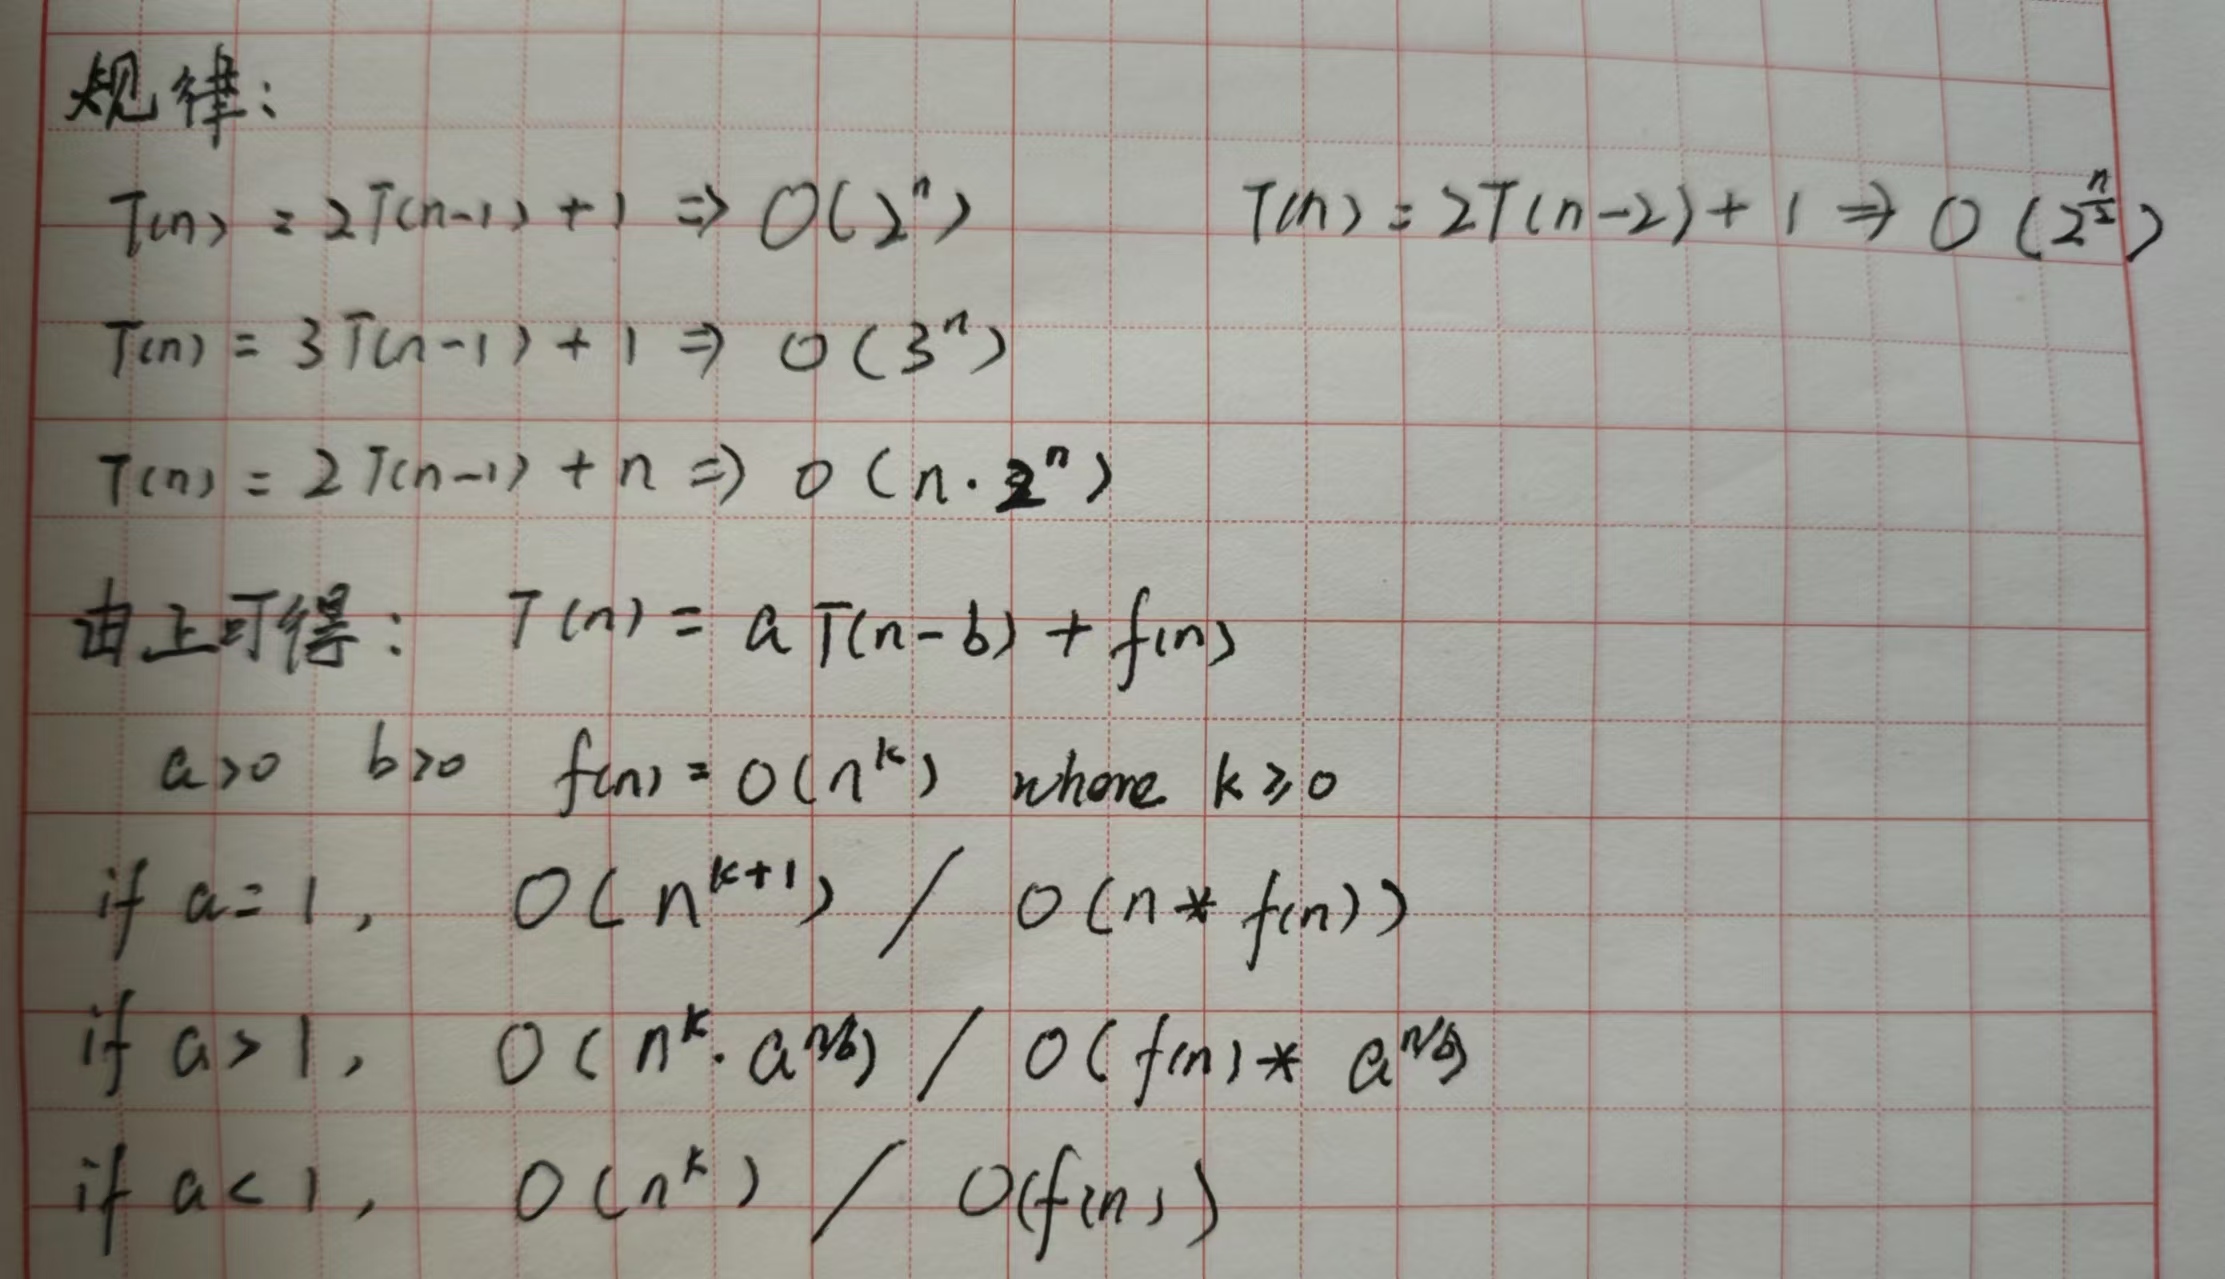 规律:
T(n) = 2T(n-1) + 1 ⇒ O(2^n) T(n) = 2T(n-2) + 1 ⇒ O(2^{n/2})
T(n) = 3T(n-1) + 1 ⇒ O(3^n)
T(n) = 2T(n-1) + n ⇒ O(n·2^n)
由上可得: T(n) = aT(n-b) + f(n)
a>0 b>0 f(n) = O(n^k) where k≥0
if a=1, O(n^{k+1}) / O(n* f(n))
if a>1, O(n^k·a^{n/b}) / O(f(n)* a^{n/b})
if a<1, O(n^k) / O(f(n))